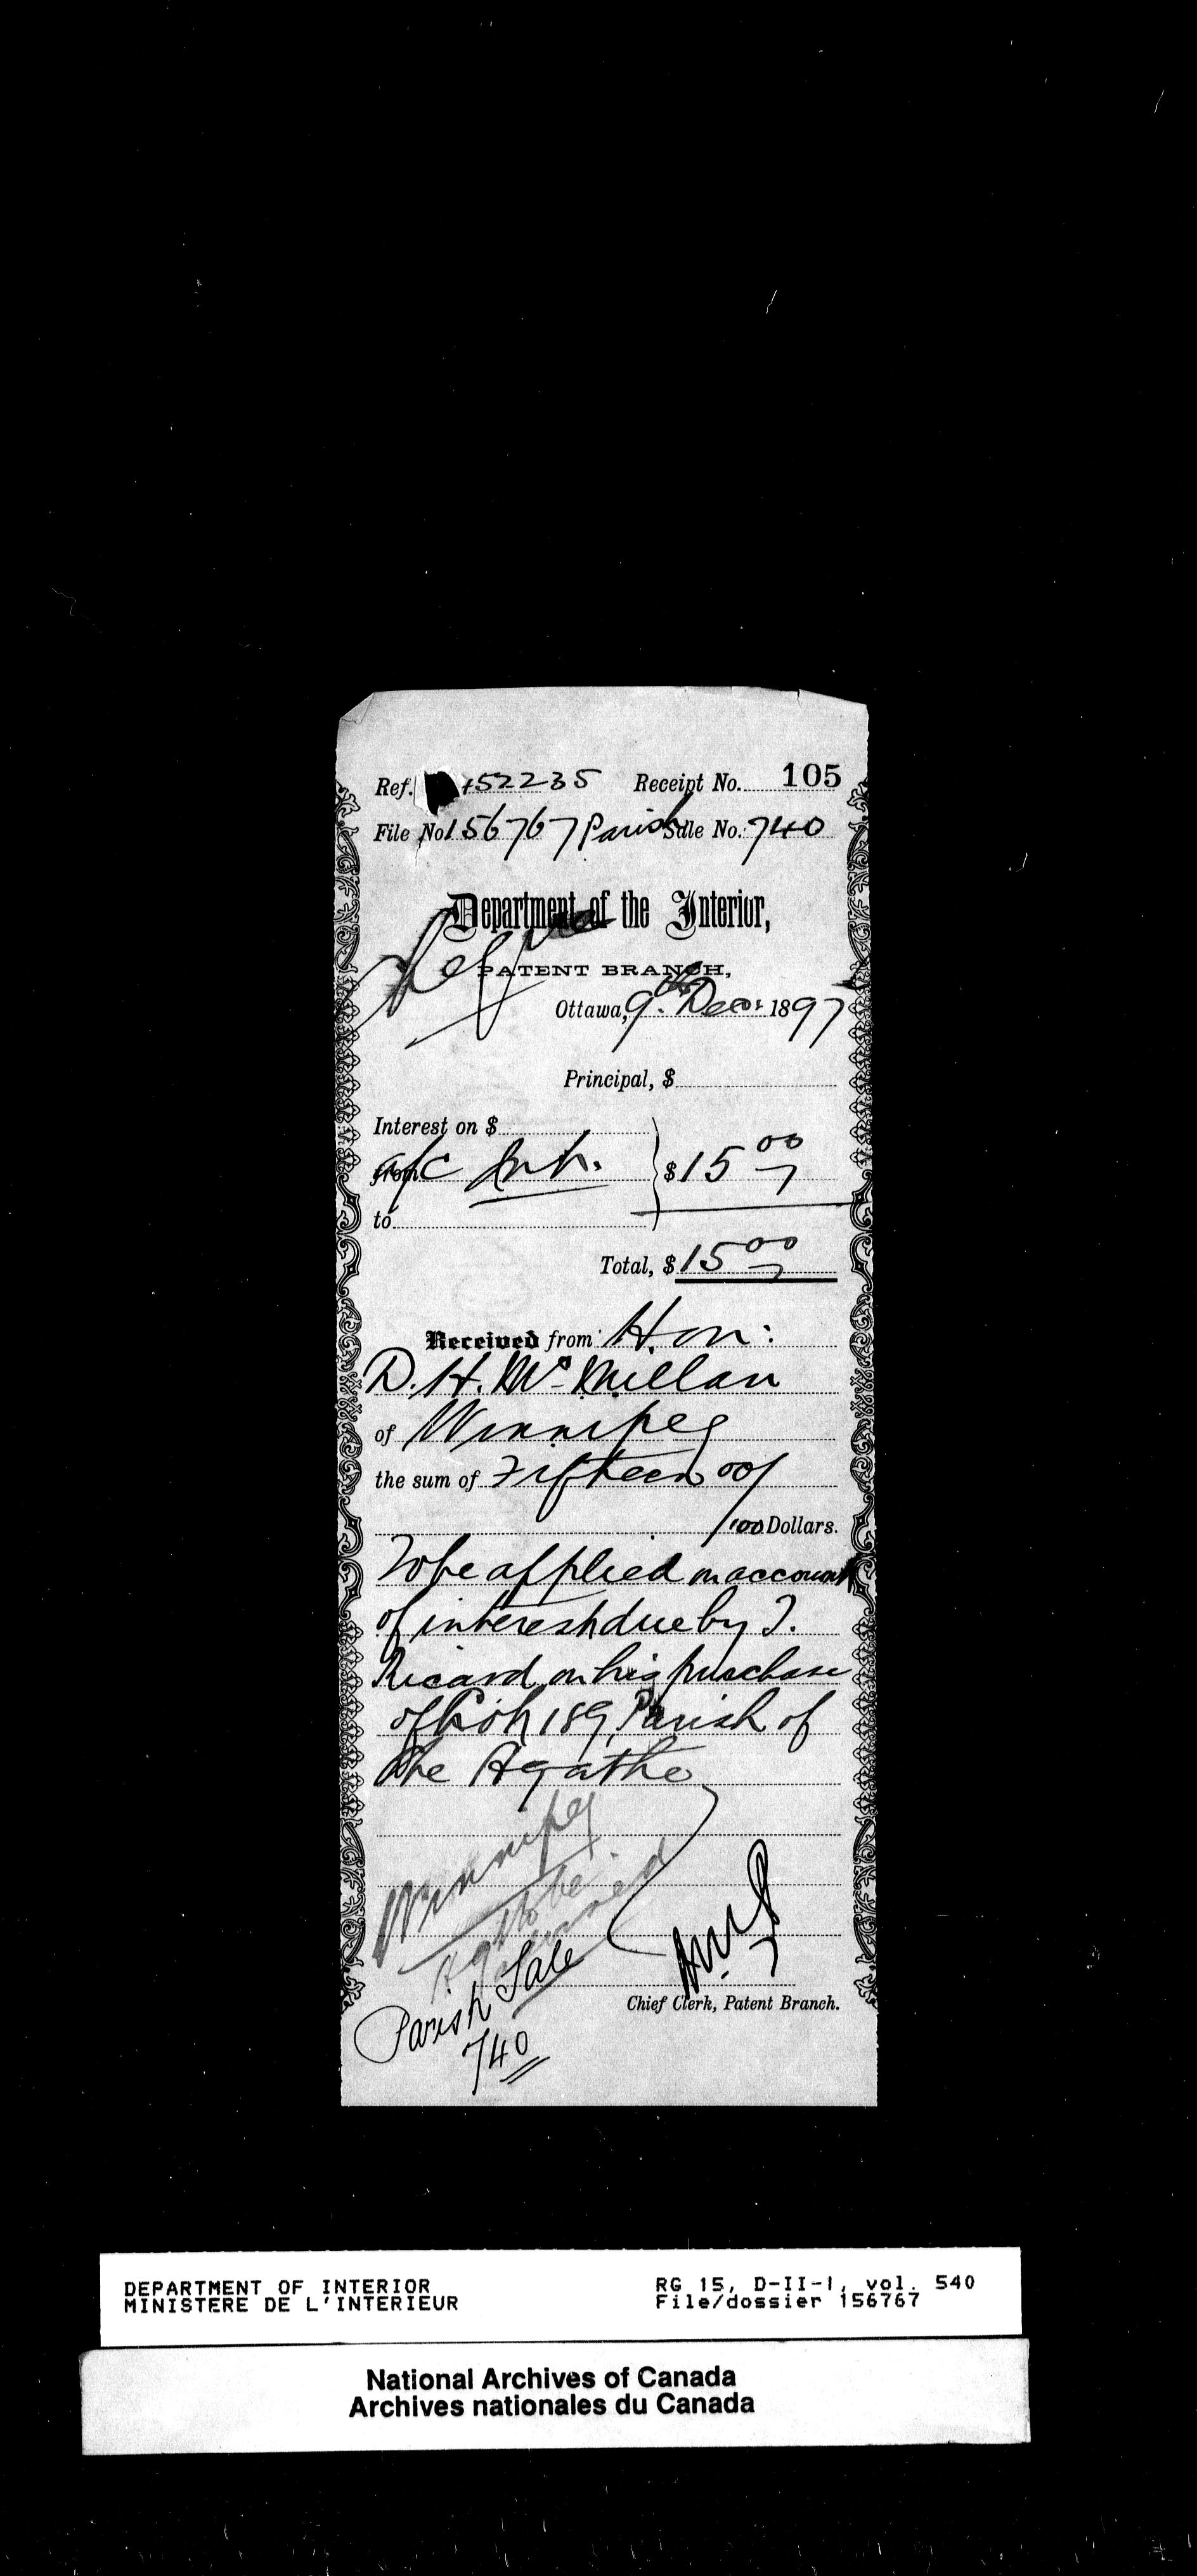 Ref. 452235 Receipt No. 105
File No. 156767 Parish Sale No. 740
Department of the Interior,
PATENT BRANCH,
Ottawa, 9th Dec: 1897
Principal, $
Interest on $
from a/c Int. $ 15 00
to
Total, $ 15 00
Received from Hon:
D. H. McMillan
of Winnipeg
the sum of Fifteen 00/
100 Dollars.
To be applied on account
of interest due by J.
Ricard on his purchase
of Lot 189, Parish of
Ste Agathe
Winnipeg
Agt to be
Parish Sale
740
Chief Clerk, Patent Branch.
DEPARTMENT OF INTERIOR RG 15, D-II-1, vol. 540
MINISTERE DE L'INTERIEUR File/dossier 156767
National Archives of Canada
Archives nationales du Canada